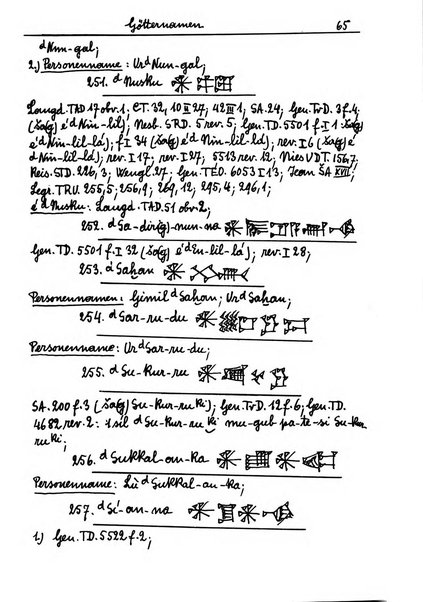 Götternamen 65
ᵈNun-gal;
2.) Personenname: Ur ᵈNun-gal;
251. ᵈNusku
Langd. TAD 17 obv. 1. CT. 32, 10 II 27; 42 III 1; SA. 24; Gen. TrD. 3 f. 4
(ša(g) é ᵈNin-lil); Nesb. SRD. 5 rev. 5; Gen. TD. 5501 f. I 1 (ša(g)
é ᵈNin-lil-lá); f. I 34 (ša(g) é ᵈNin-lil-lá); rev. I 6 (ša(g) é
ᵈNin-lil-lá); rev. I 17; rev. I 27; 5513 rev. 12; Nies UDT. 156,7;
Reis. STD. 226,3; Wengl. 27; Gen. TÉO. 6053 I 13; Jean ŠA XVII;
Legr. TRU. 255,5; 256,9; 269,12; 295,4; 296,1;
é ᵈNusku: Langd. TAD. 51 obv. 2;
252. ᵈSa-diri(g)-nun-na
Gen. TD. 5501 f. I 32 (ša(g) é ᵈEn-lil-lá); rev. I 28;
253. ᵈSaḫan
Personennamen: Gimil ᵈSaḫan; Ur ᵈSaḫan;
254. ᵈSar-ru-du
Personenname: Ur ᵈSar-ru-du;
255. ᵈSu-kur-ru
SA. 200 f. 3 (ša(g) Su-kur-ru ki); Gen. TrD. 12 f. 6; Gen. TD.
4682 rev. 2: 1 sil ᵈSu-kur-ru ki mu-gub pa-te-si Su-kur-
ru ki;
256. ᵈSukkal-an-ka
Personenname: Lù ᵈSukkal-an-ka;
257. ᵈSi-an-na
1.) Gen. TD. 5522 f. 2;